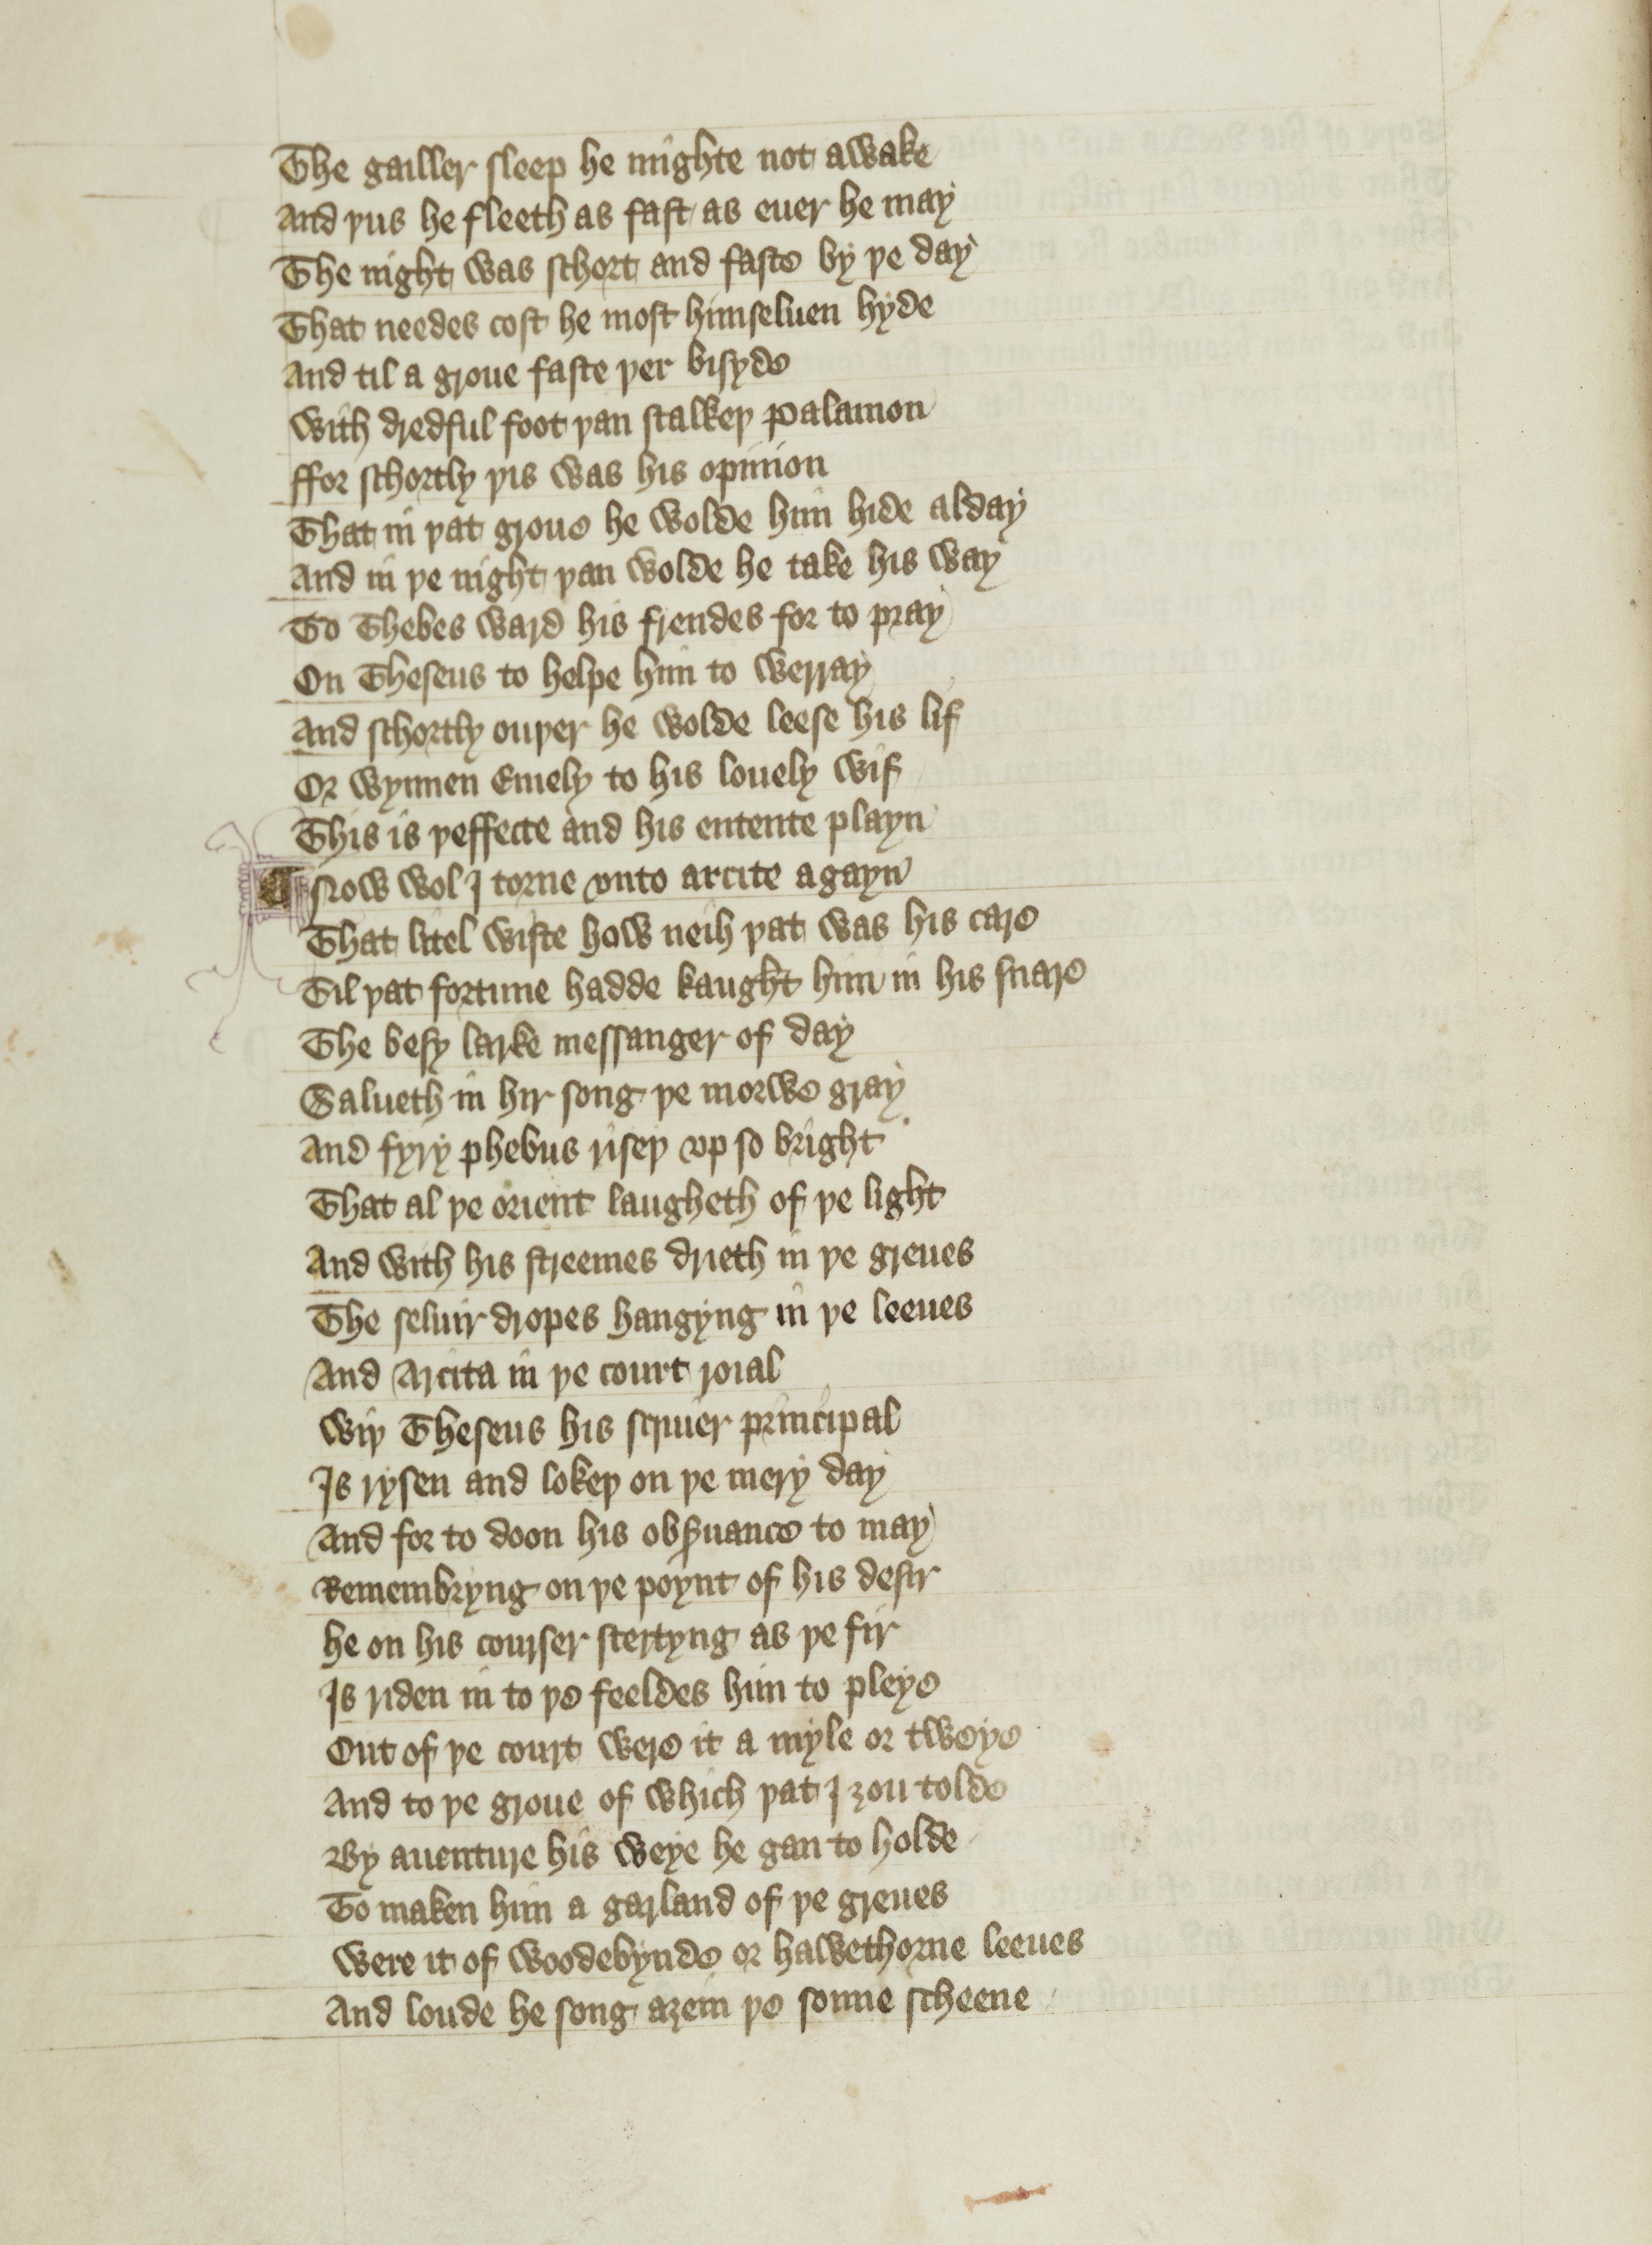 The gailler sleep he mighte not awake
And þus he fleeth as fast as euer he may
The night was schort and faste by þe day
That needes cost he most himseluen hyde
And til a groue faste þer bisyde
With dredful foot þan stalkeþ Palamon
ffor schortly þis was his opinion
That in þat groue he wolde him hide alday
And in þe night þan wolde he take his way
To Thebes ward his frendes for to pray
On Theseus to helpe him to werray
And schortly ouþer he wolde leese his lif
Or wynnen Emely to his louely wif
This is þeffecte and his entente playn
¶ Now wol I torne vnto arcite agayn
That litel wiste how neih þat was his care
Til þat fortune hadde kaught him in his snare
The besy larke messanger of day
Salueth in hir song þe morwe gray
And fyry phebus riseþ vp so bright
That al þe orient laugheth of þe light
And with his streemes drieth in þe greues
The seluir dropes hangyng in þe leeues
And Arcita in þe court roial
Wiþ Theseus his squier principal
Is rysen and lokeþ on þe mery day
And for to doon his obꝑuance to may
Remembryng on þe poynt of his desir
he on his courser stertyng as þe fir
Is riden in to þe feeldes him to pleye
Out of þe court were it a myle or tweye
And to þe groue of which þat I ȝou tolde
By auenture his weye he gan to holde
To maken him a garland of þe greues
Were it of woodebynde or hawethorne leeues
And loude he song aȝein þe sonne scheene